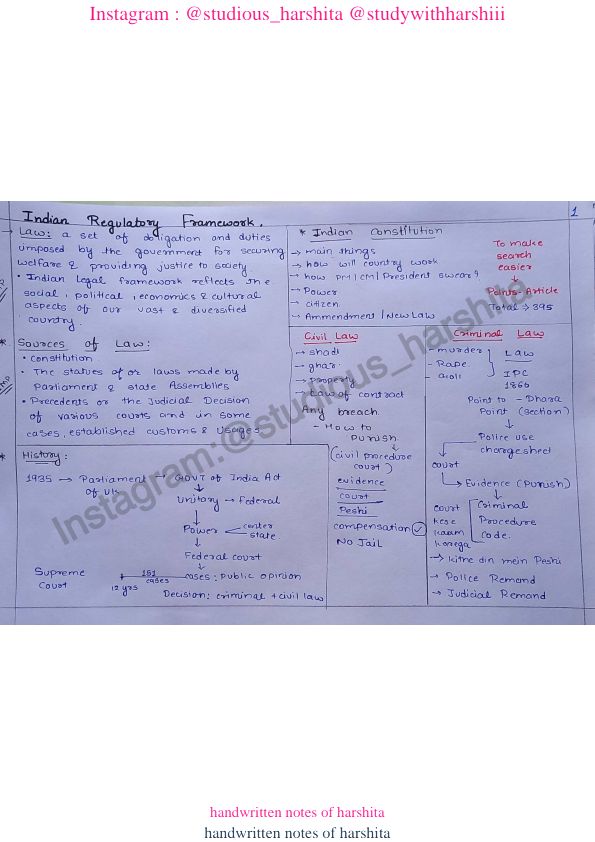 Instagram : @studious_harshita @studywithharshiii
1
Indian Regulatory Framework.
→ Law: a set of obligation and duties
imposed by the government for securing
welfare & providing justice to society
• Indian legal framework reflects the
social, political, economics & cultural
aspects of our vast & diversified
country.
* Sources of Law:
• constitution
• The statues of or laws made by
Parliament & state Assemblies
• Precedents or the Judicial Decision
of various courts and in some
cases, established customs & usages.
* History:
1935 → Parliament → GOVT of India Act
of UK
↓
Unitary → Federal
↓
Power center
state
↓
Federal court
↓
Supreme
Court
151
cases
12 yrs
cases: public opinion
Decision: criminal + civil law
* Indian Constitution
→ main things
→ how will country work
→ how PM/CM/President swear?
→ Power
→ citizen
→ Ammendment/New Law
To make
search
easier
↓
Points - Article
Total → 395
Civil Law
→ shadi
→ ghar
→ Property
→ Law of contract
Any breach
- How to
punish
↓
(civil procedure
court)
evidence
court
Peshi
compensation ✓
No Jail
Criminal Law
- murder
- Rape
Law
↓
IPC
1860
Point to - Dhara
Point (section)
↓
Police use
chargesheet
court
↓
Evidence (Punish)
↓
court
kese
kaam
karega
Criminal
Procedure
Code.
→ kitne din mein Peshi
→ Police Remand
→ Judicial Remand
Instagram:@studious_harshita
handwritten notes of harshita
handwritten notes of harshita